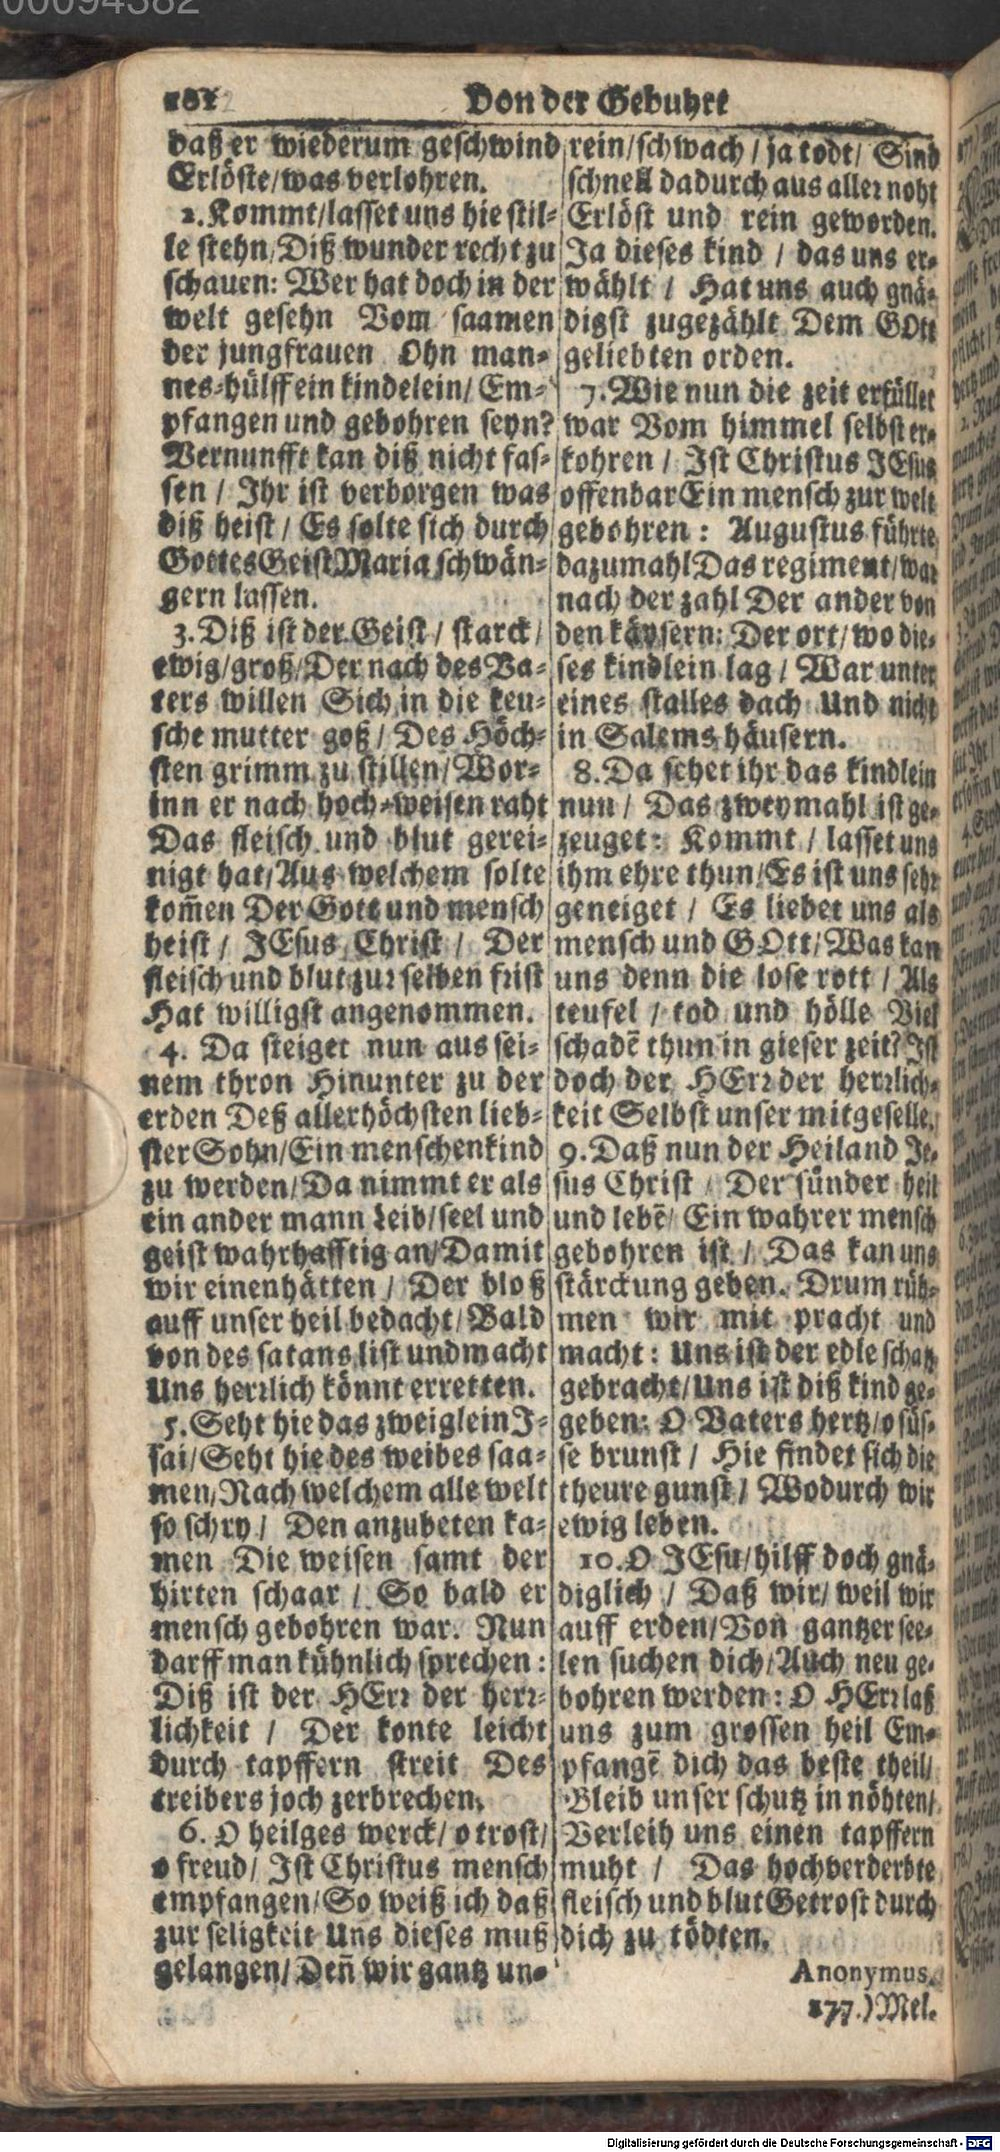 00094382
182
Von der Gebuhrt
daß er wiederum geschwind
Erlöste/was verlohren.
2. Kommt/lasset uns hie stil-
le stehn/Diß wunder recht zu
schauen: Wer hat doch in der
welt gesehn Vom saamen
der jungfrauen Ohn man-
nes-hülff ein kindelein/ Em-
pfangen und gebohren seyn?
Vernunfft kan diß nicht fas-
sen / Ihr ist verborgen was
diß heist / Es solte sich durch
Gottes Geist Maria schwän-
gern lassen.
3. Diß ist der Geist / starck/
ewig/groß/Der nach des Va-
ters willen Sich in die keu-
sche mutter goß / Des Höch-
sten grimm zu stillen/ Wor-
inn er nach hoch-weisen raht
Das fleisch und blut gerei-
nigt hat/Aus welchem solte
kom̃en Der Gott und mensch
heist / JEsus Christ / Der
fleisch und blut zur selben frist
Hat willigst angenommen.
4. Da steiget nun aus sei-
nem thron Hinunter zu der
erden Deß allerhöchsten lieb-
ster Sohn/Ein menschenkind
zu werden/Da nimmt er als
ein ander mann Leib/seel und
geist wahrhafftig an/Damit
wir einen hätten / Der bloß
auff unser heil bedacht/ Bald
von des satans list und macht
Uns herrlich könnt erretten.
5. Seht hie das zweiglein I-
sai/Seht hie des weibes saa-
men/Nach welchem alle welt
so schry / Den anzubeten ka-
men Die weisen samt der
hirten schaar / So bald er
mensch gebohren war. Nun
darff man kühnlich sprechen:
Diß ist der HErr der herr-
lichkeit / Der konte leicht
durch tapffern streit Des
treibers joch zerbrechen.
6. O heilges werck/ o trost/
o freud/ Ist Christus mensch
empfangen/So weiß ich daß
zur seligkeit Uns dieses muß
gelangen/ Den̄ wir gantz un-
rein/schwach / ja todt/ Sind
schnell dadurch aus aller noht
Erlöst und rein geworden.
Ja dieses kind / das uns er-
wählt / Hat uns auch gnä-
digst zugezählt Dem GOtt
geliebten orden.
7. Wie nun die zeit erfüllet
war Vom himmel selbst er-
kohren / Ist Christus JEsus
offenbar Ein mensch zur welt
gebohren : Augustus führte
dazumahl Das regiment/war
nach der zahl Der ander von
den käysern: Der ort/ wo die-
ses kindlein lag / War unter
eines stalles dach Und nicht
in Salems häusern.
8. Da sehet ihr das kindlein
nun / Das zweymahl ist ge-
zeuget: Kommt / lasset uns
ihm ehre thun/Es ist uns sehr
geneiget / Es liebet uns als
mensch und GOtt/Was kan
uns denn die lose rott / Als
teufel / tod und hölle Viel
schadē thun in gieser zeit? Ist
doch der HErr der herrlich-
keit Selbst unser mitgeselle.
9. Daß nun der Heiland Je-
sus Christ / Der sünder heil
und lebē/ Ein wahrer mensch
gebohren ist / Das kan uns
stärckung geben. Drum rüh-
men wir mit pracht und
macht: Uns ist der edle schatz
gebracht/Uns ist diß kind ge-
geben: O Vaters hertz/o süs-
se brunst / Hie findet sich die
theure gunst / Wodurch wir
ewig leben.
10. O JEsu/hilff doch gnä-
diglich / Daß wir/ weil wir
auff erden/Von gantzer see-
len suchen dich/Auch neu ge-
bohren werden: O HErr laß
uns zum grossen heil Em-
pfangē dich das beste theil/
Bleib unser schutz in nöhten/
Verleih uns einen tapffern
muht / Das hochverderbte
fleisch und blut Getrost durch
dich zu tödten.
Anonymus.
177.) Mel.
Digitalisierung gefördert durch die Deutsche Forschungsgemeinschaft - DFG